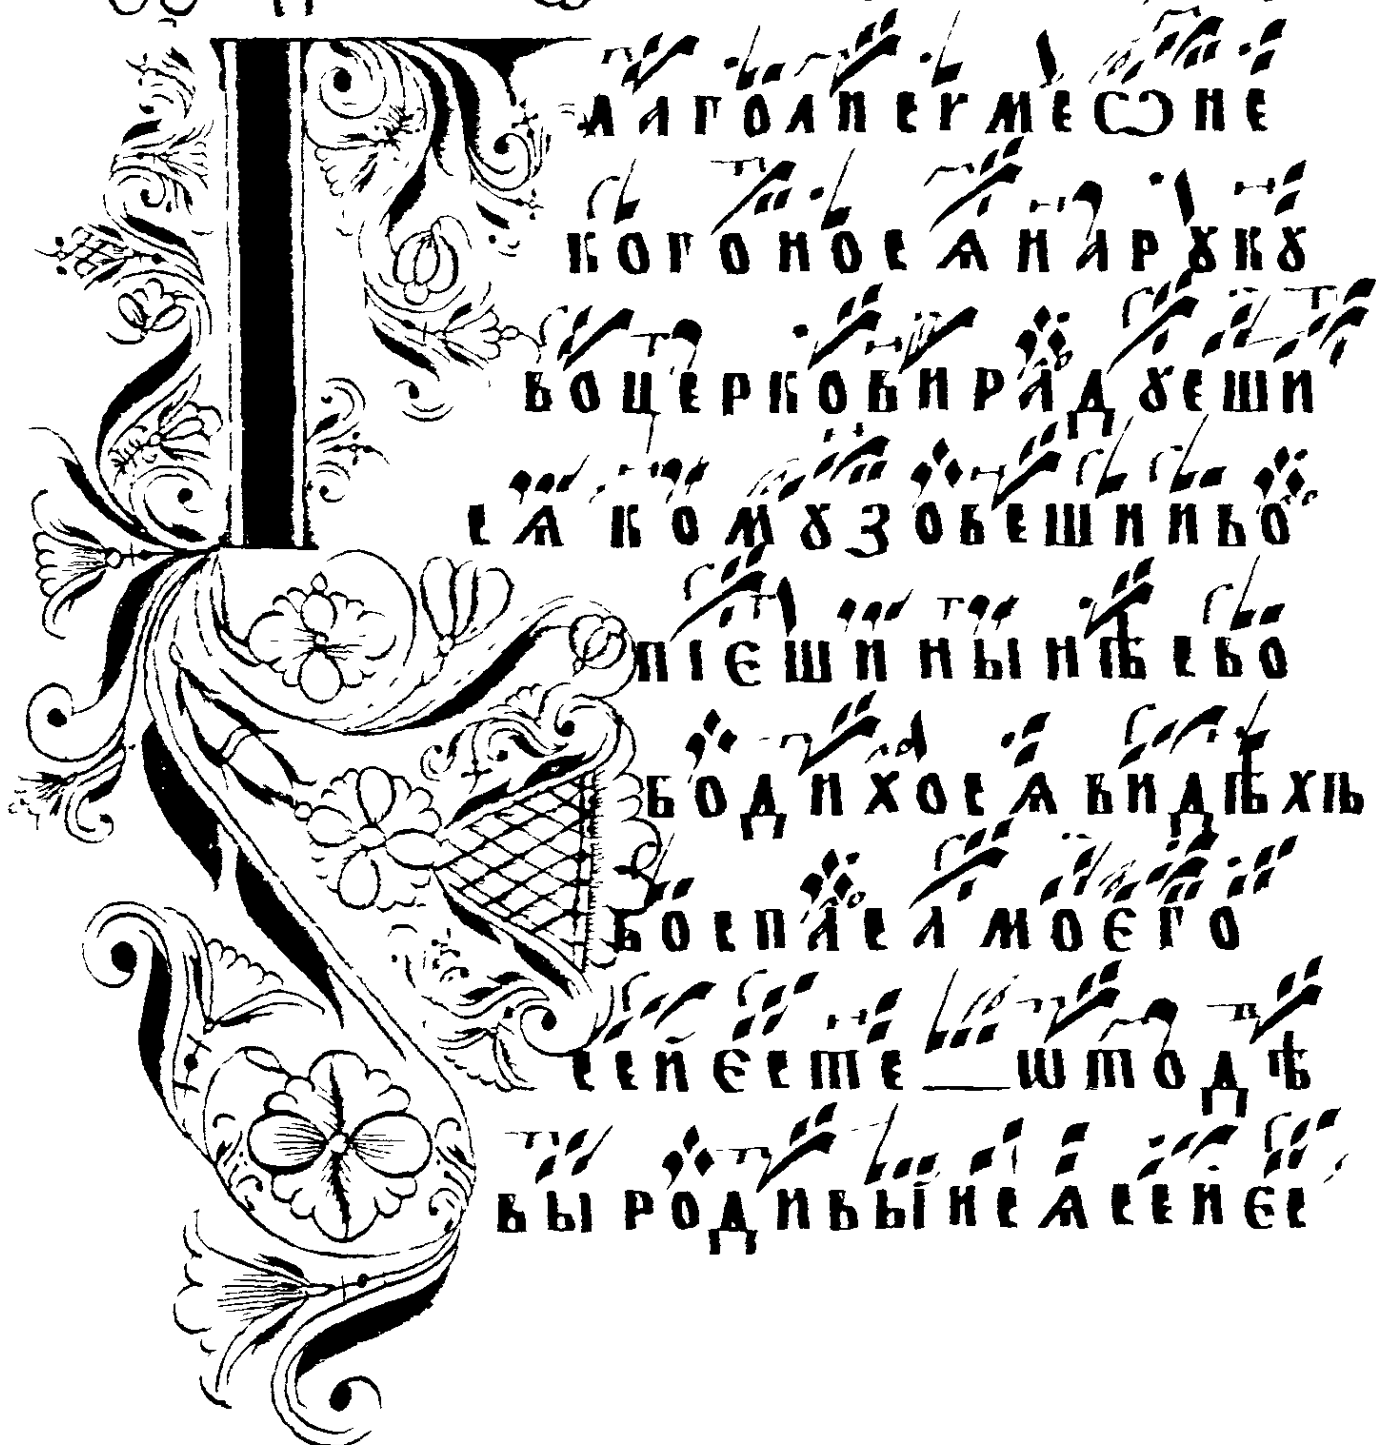 Глаголи Сѵмеѡне
когоносѧ на рꙋкꙋ
во церкови радꙋеши
сѧ комꙋ зовеши и во
пїєши нынѣ сво
бодихосѧ видѣхъ
бо спаса моєго
сей єсте ѿ дѣ
вы родивыи сѧ сей єс